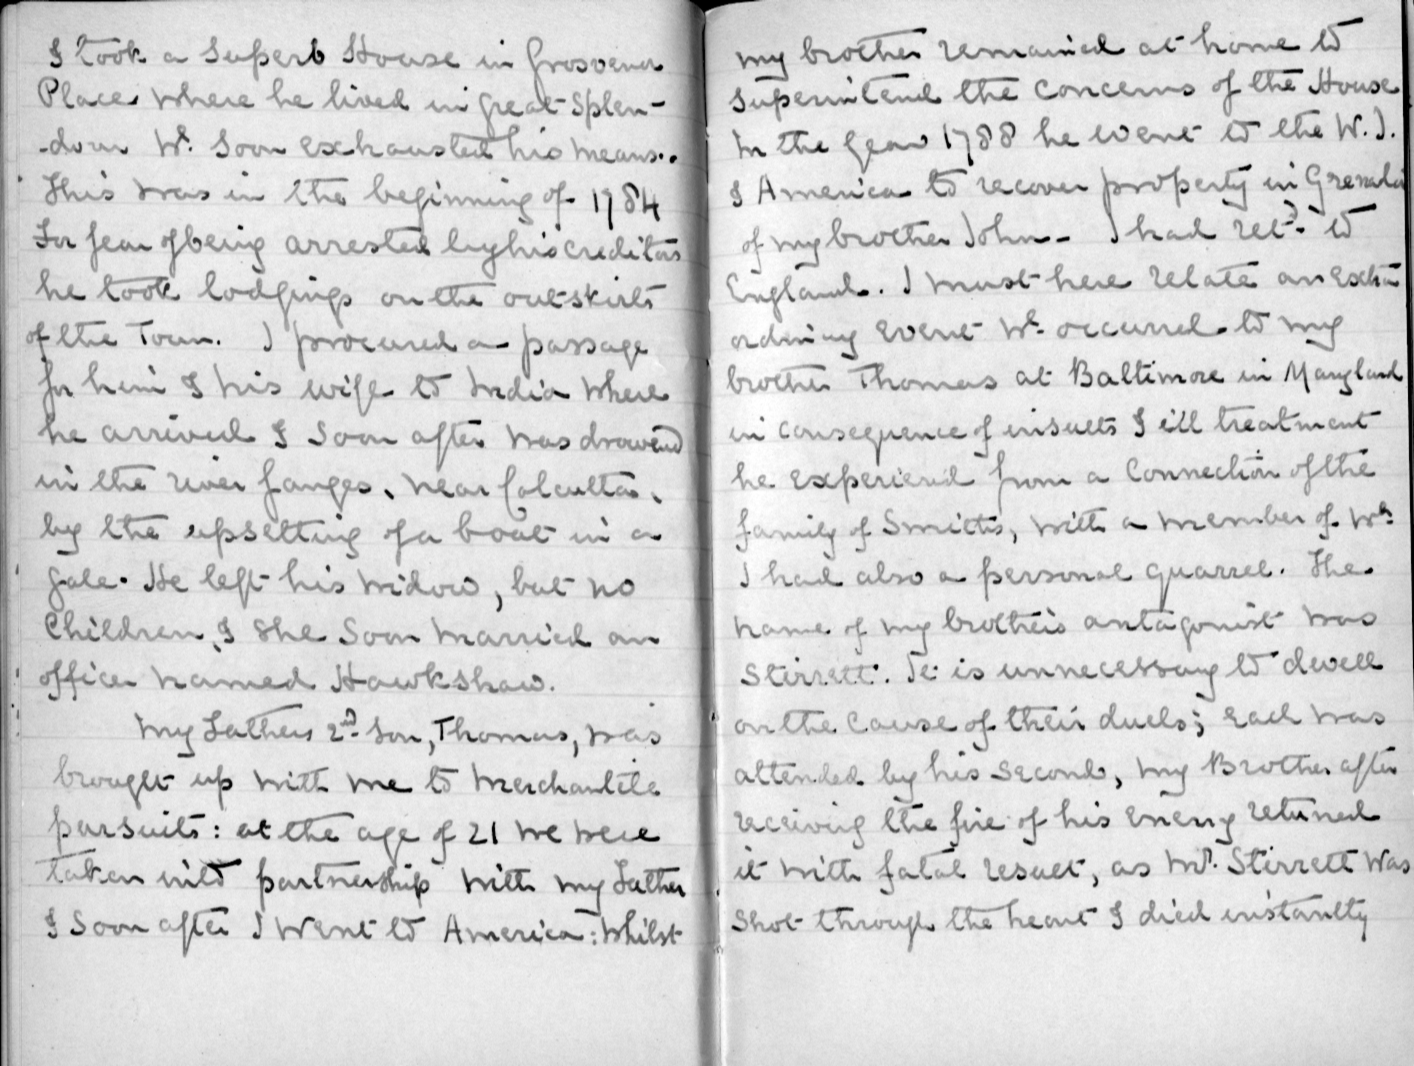 & took a Superb House in Grosvenor
Place where he lived in great Splen-
-dour wh. Soon exhausted his means..
This was in the beginning of 1784
For fear of being arrested by his creditors
he took lodgings on the outskirts
of the Town. I procured a passage
for him & his wife to India where
he arrived & Soon after was drowned
in the river Ganges, near Calcutta,
by the upsetting of a boat in a
gale. He left his widow, but no
Children, & She Soon married an
officer named Hawkshaw.
My Fathers 2nd Son, Thomas, was
brought up with me to Merchantile
pursuits: at the age of 21 we were
taken into partnership with my Father
& Soon after I went to America: whilst
my brother remained at home to
Superintend the concerns of the House
In the year 1788 he went to the W.I.
& America to recover property in Grenada
of my brother John - I had retd. to
England. I must here relate an extra
ordinary event wh. occurred to my
brother Thomas at Baltimore in Maryland
in consequence of insults & ill treatment
he experiend from a Connection of the
family of Smiths, with a member of wh
I had also a personal quarrel. The
name of my brother's antagonist was
Stirrett. It is unnecessary to dwell
on the cause of their duels; each was
attended by his second, my Brother after
receiving the fire of his enemy returned
it with fatal result, as Mr. Stirrett was
shot through the heart & died instantly